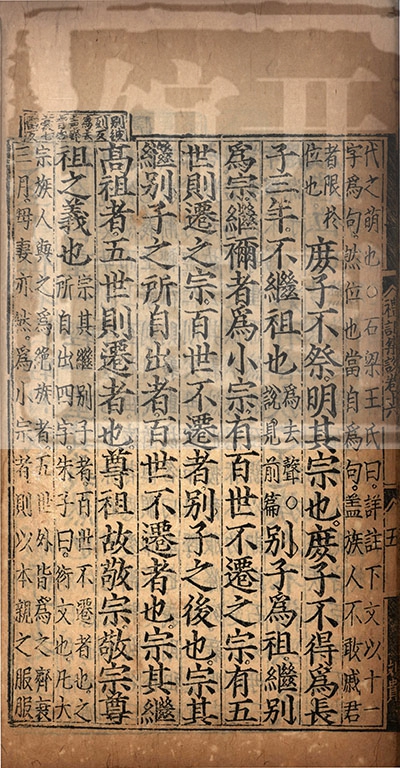 代之萌也○石梁王氏曰詳註下文以十一
字爲句然位也當自爲句蓋族人不敢戚君
者限於
位也
庶子不祭明其宗也庶子不得爲長
子三年不繼祖也
爲去聲○
說見前篇
別子爲祖繼別
爲宗繼禰者爲小宗有百世不遷之宗有五
世則遷之宗百世不遷者別子之後也宗其
繼別子之所自出者百世不遷者也宗其繼
高祖者五世則遷者也尊祖故敬宗敬宗尊
祖之義也
宗其繼別子者百世不遷者也之
所自出四字朱子曰衍文也凡大
宗族人與之爲絶族者五世外皆爲之齊衰
三月母妻亦然爲小宗者則以本親之服服
別彼
列反